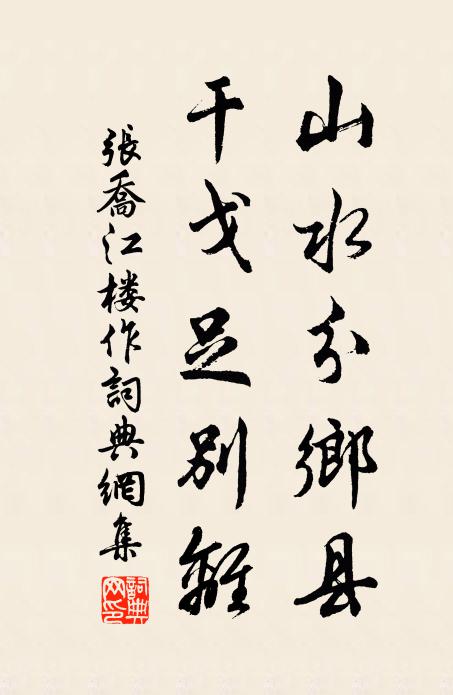 山水分鄉县
干戈足別離
張喬江楼作詞典網集
詞典網印